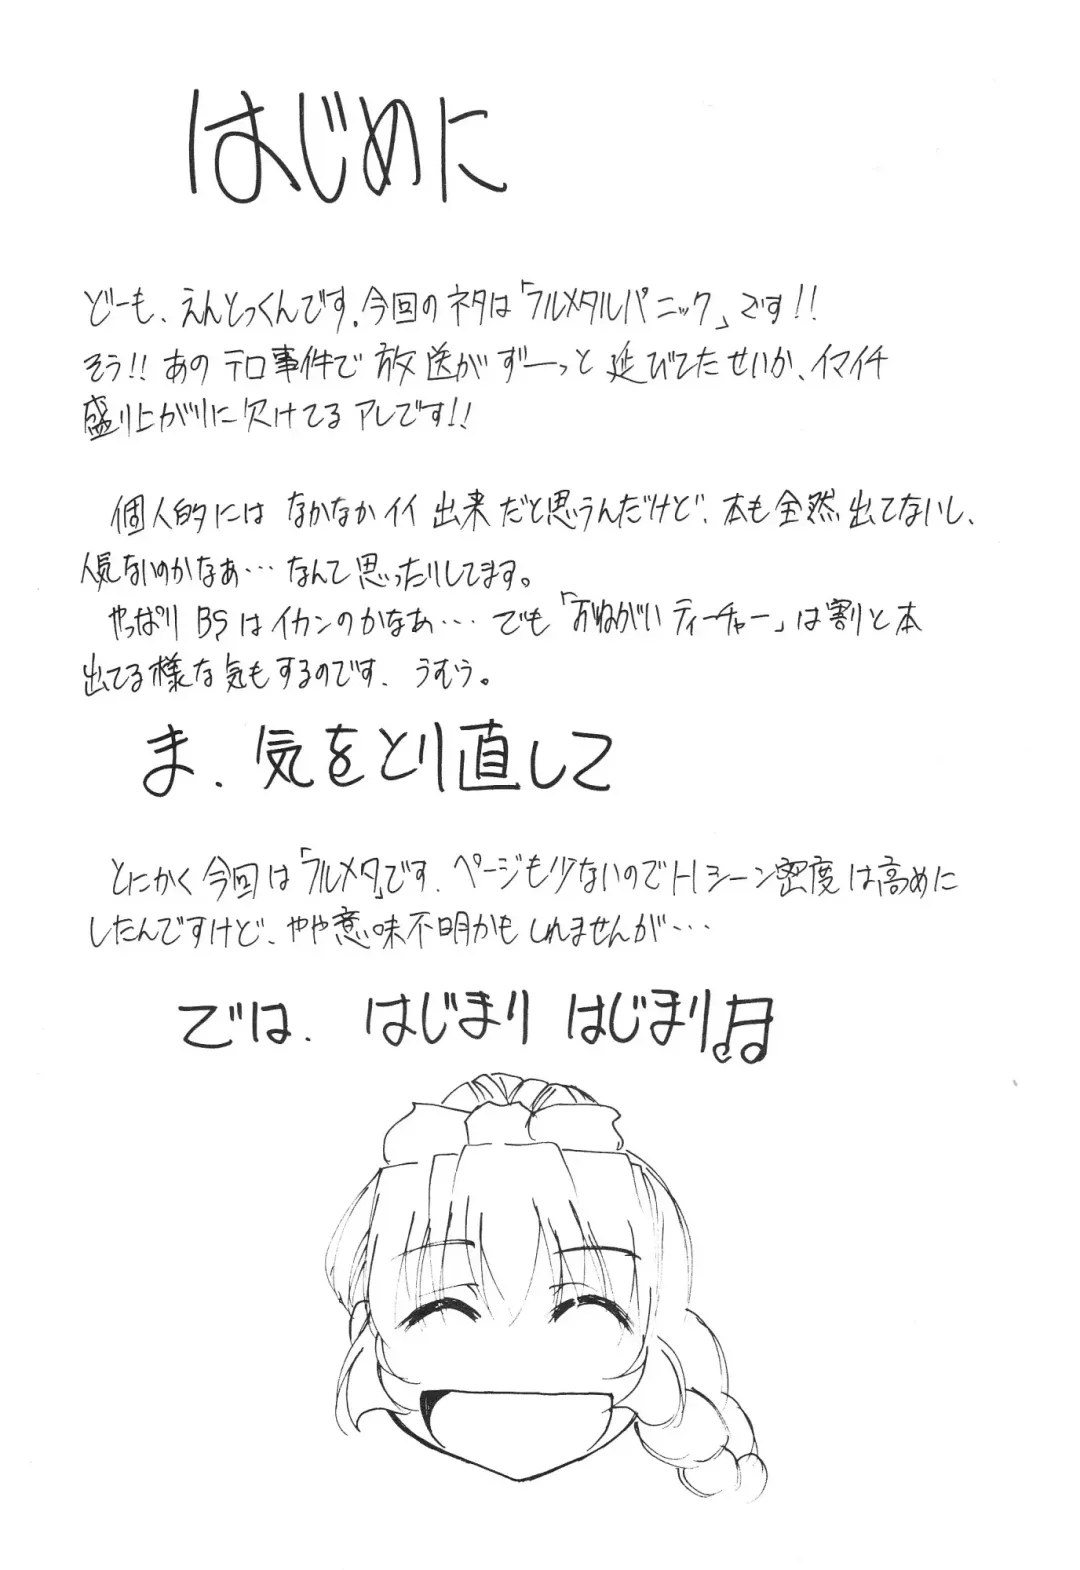 はじめに
どーも、えんとっくんです。今回のネタは「フルメタルパニック」です!!
そう!!あのテロ事件で放送がずーっと延びてたせいか、イマイチ
盛り上がりに欠けてるアレです!!
個人的にはなかなかイイ出来だと思うんだけど、本も全然出てないし、
人気ないのかなぁ…なんて思ったりしてます。
やっぱりBSはイカンのかなぁ…でも「おねがいティーチャー」は割と本
出てる様な気もするのです、うむう。
ま、気をとり直して
とにかく今回は「フルメタ」です、ページも少ないのでHシーン密度は高めに
したんですけど、やや意味不明かもしれませんが…
では、はじまりはじまり♫